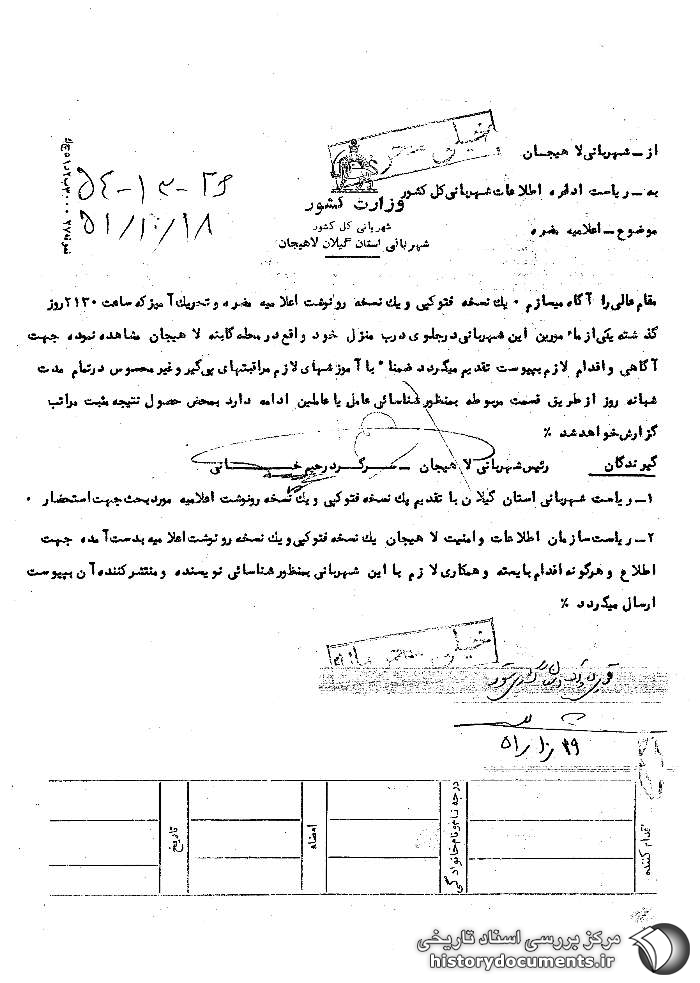 خیلی محرمانه
از ـ شهربانی لاهیجان
به ـ ریاست اداره اطلاعات شهربانی کل کشور
موضوع ـ اعلامیه مضره
وزارت کشور
شهربانی کل کشور
شهربانی استان گیلان لاهیجان
۵۱/۱۰/۱۸
مقام عالی را آگاه میسازم ۰ یک نسخه فتوکپی و یک نسخه رونوشت اعلامیه مضره و تحریک آمیز که ساعت ۲۱۳۰ روز
گذشته یکی از مامورین این شهربانی در جلوی درب منزل خود واقع در محله گابنه لاهیجان مشاهده نموده جهت
آگاهی و اقدام لازم بپیوست تقدیم میگردد ضمنا" با آموزشهای لازم مراقبتهای پی گیر و غیر محسوس در تمام مدت
شبانه روز از طریق قسمت مربوطه بمنظور شناسائی عامل یا عاملین ادامه دارد بمحض حصول نتیجه مثبت مراتب
گزارش خواهد شد ٪
رئیس شهربانی لاهیجان ـ سرگرد رحیم خانی
گیرندگان
۱ـ ریاست شهربانی استان گیلان با تقدیم یک نسخه فتوکپی و یک نسخه رونوشت اعلامیه مورد بحث جهت استحضار ۰
۲ـ ریاست سازمان اطلاعات و امنیت لاهیجان یک نسخه فتوکپی و یک نسخه رونوشت اعلامیه بدست آمده جهت
اطلاع و هرگونه اقدام بایسته و همکاری لازم با این شهربانی بمنظور شناسائی نویسنده و منتشر کننده آن بپیوست
ارسال میگردد ٪
خیلی محرمانه
اقدام کننده
درجه نام و نام خانوادگی
امضاء
تاریخ
مرکز بررسی اسناد تاریخی
historydocuments.ir